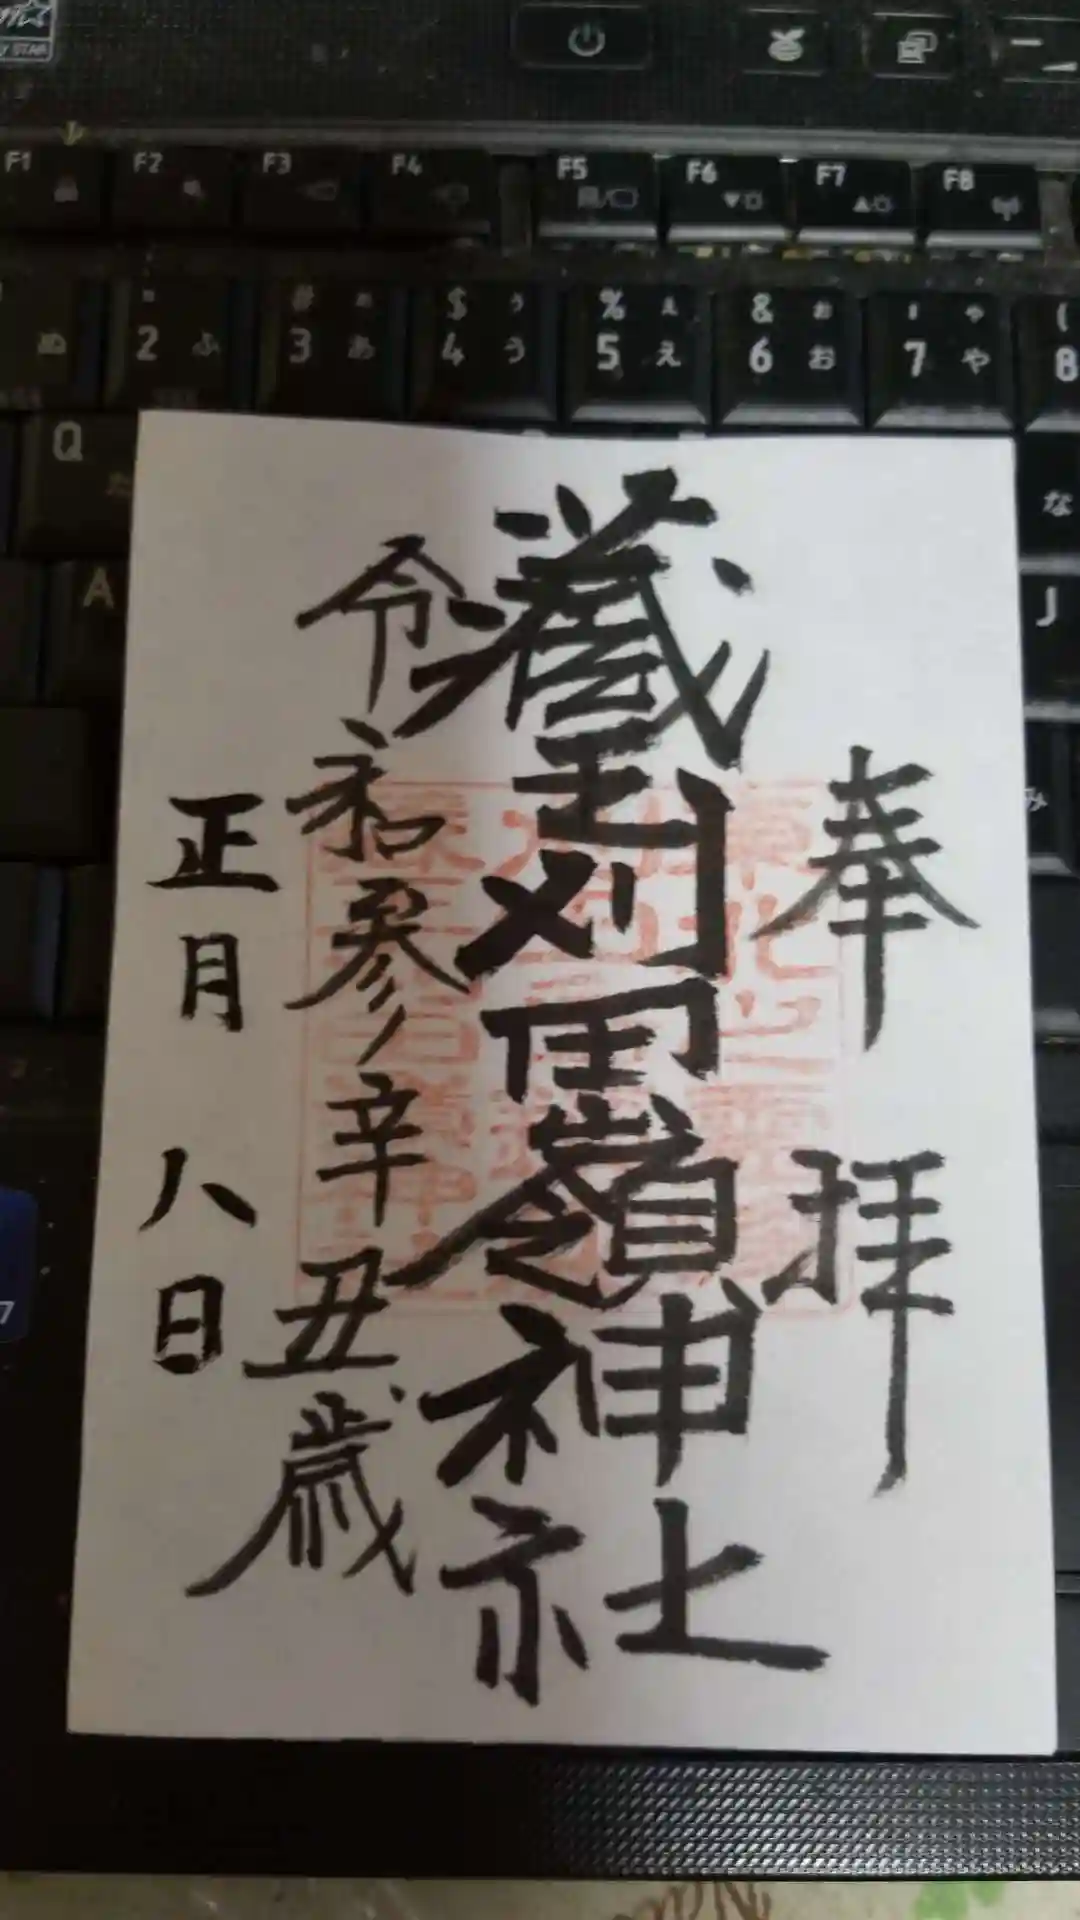 奉拝
蔵王刈田嶺神社
令和参辛丑歳
正月八日
F1 F2 F3 F4 F5 F6 F7 F8
# ぁ $ ぅ % ぇ & ぉ ' ゃ (
ぬ 2 ふ 3 あ 4 う 5 え 6 お 7 や 8
Q た
な
A
J
み